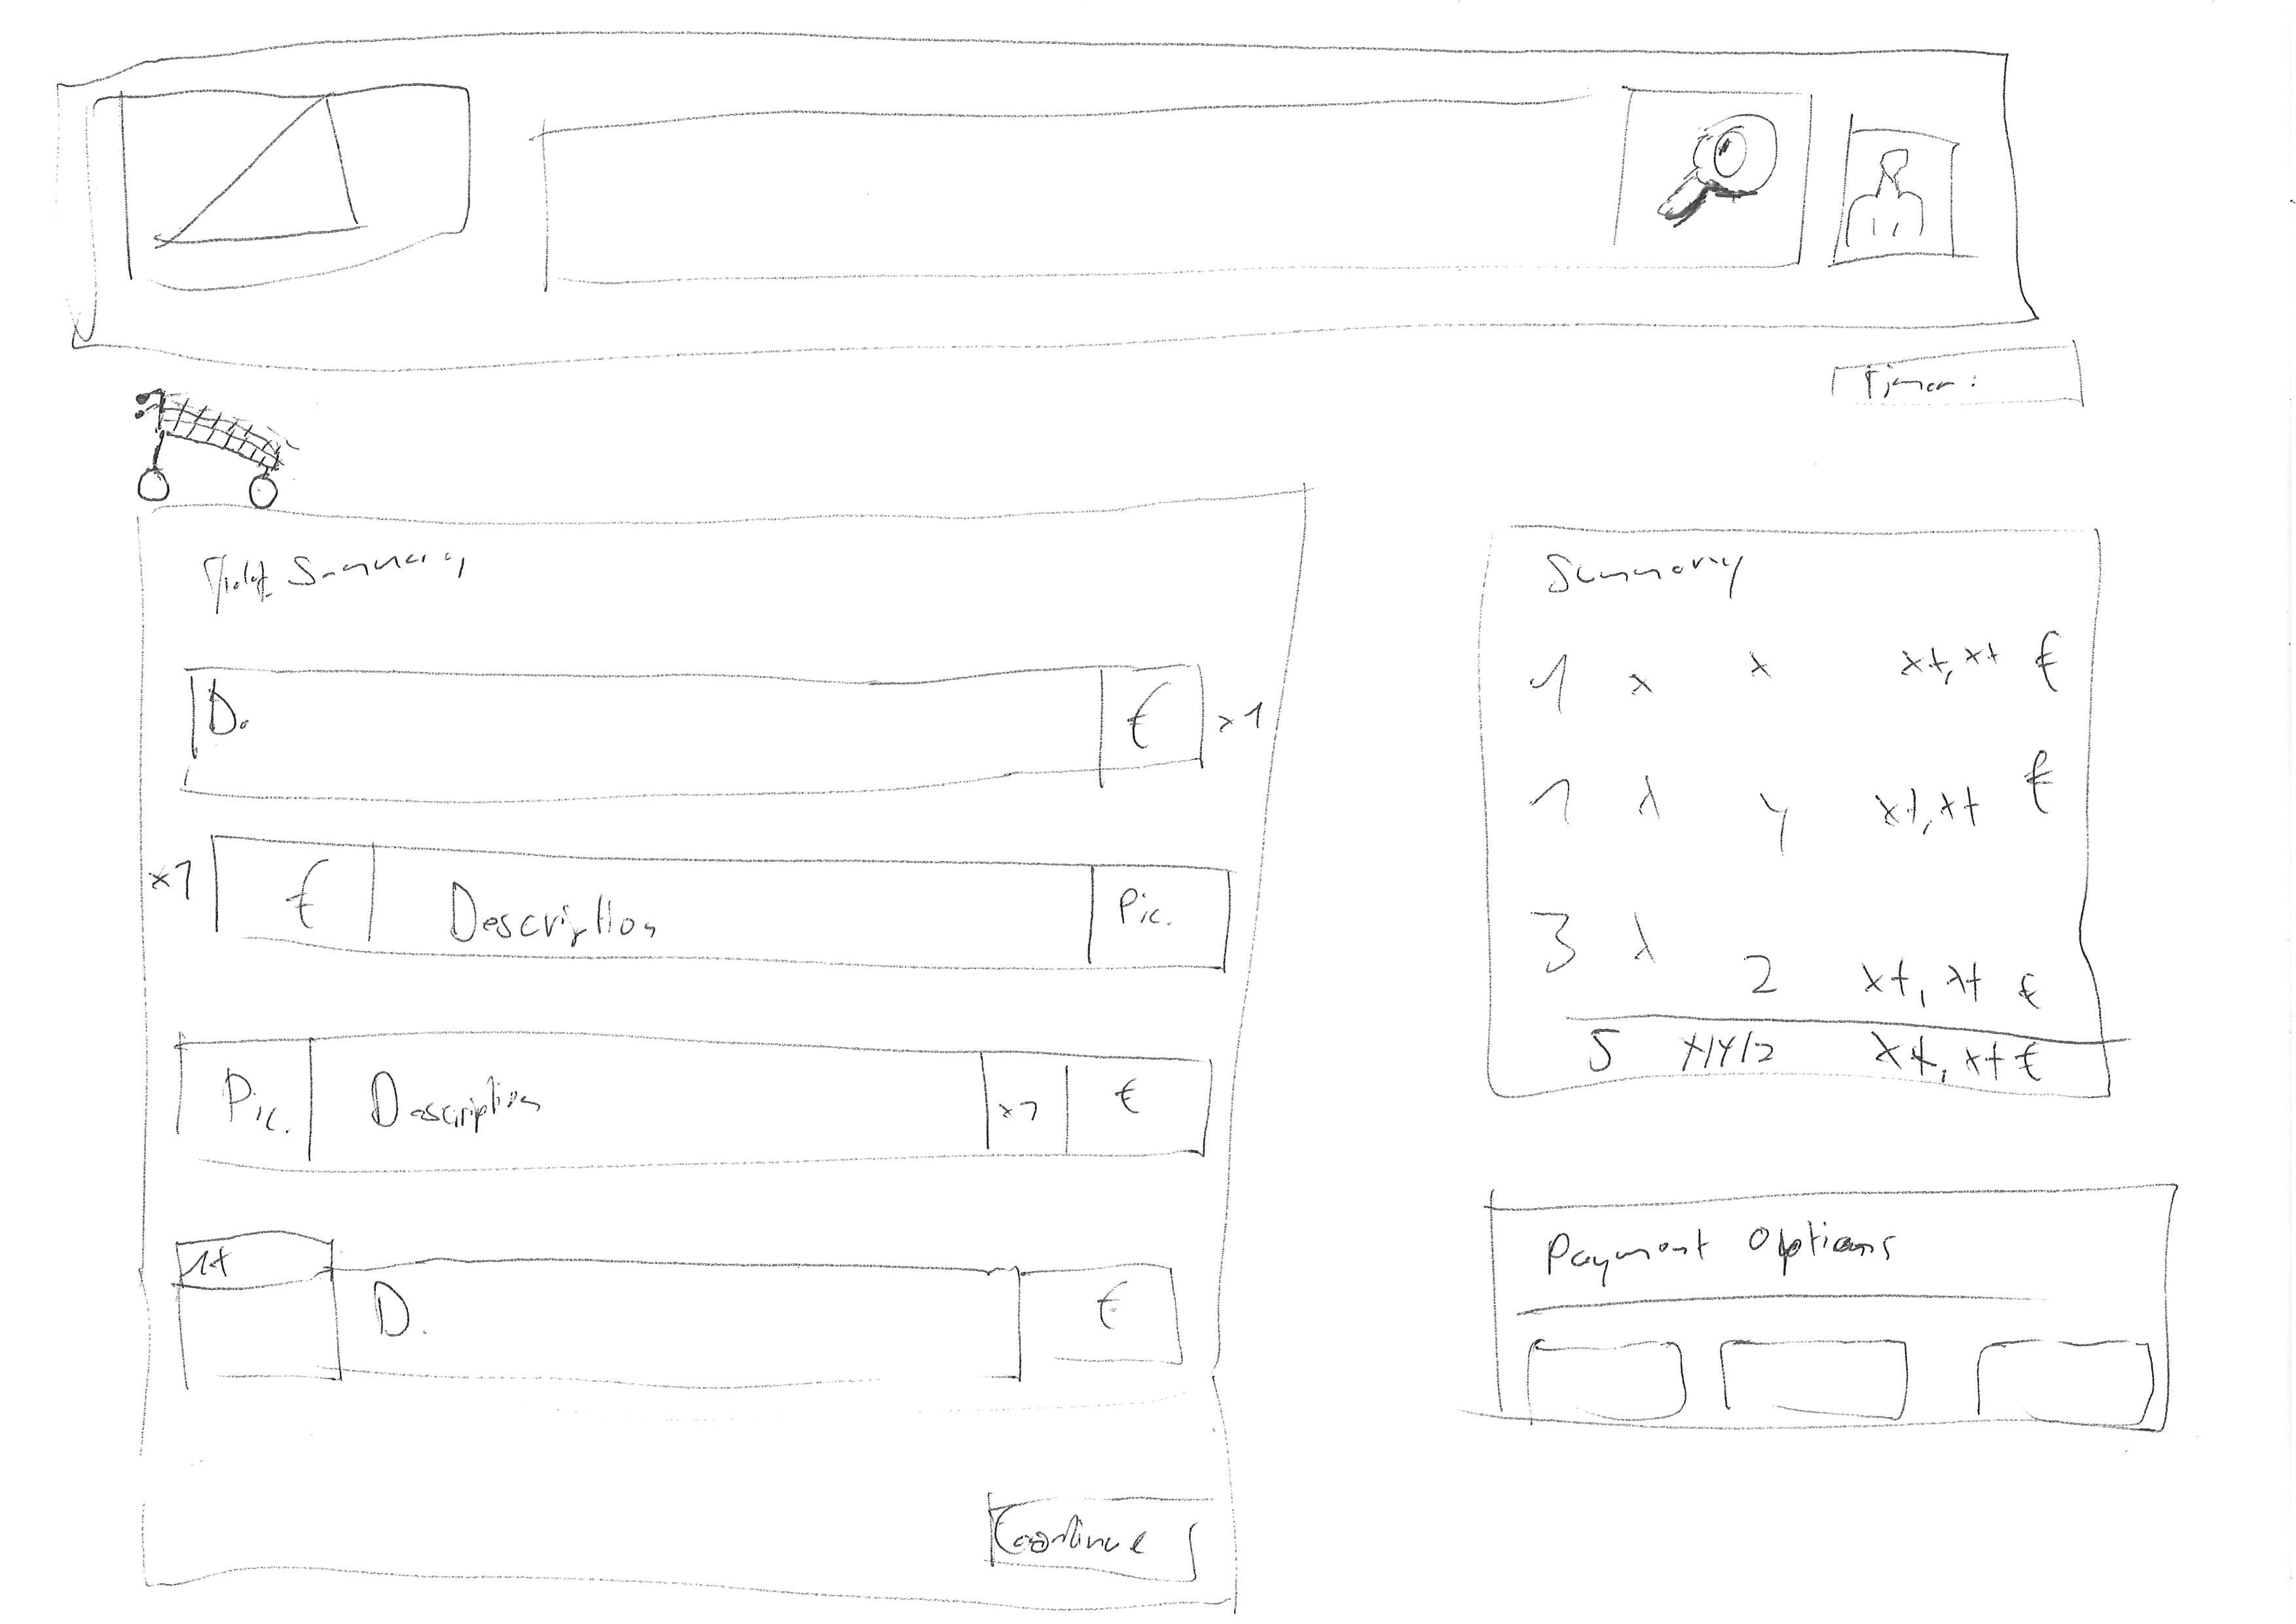 Timer:
Summary
D. € x1
x1 € Description Pic.
Pic. Description x1 €
1x
D. €
Continue
Summary
1 x x xx,xx €
1 x y xx,xx €
3 x z xx,xx €
5 x/y/z xx,xx €
Payment Options